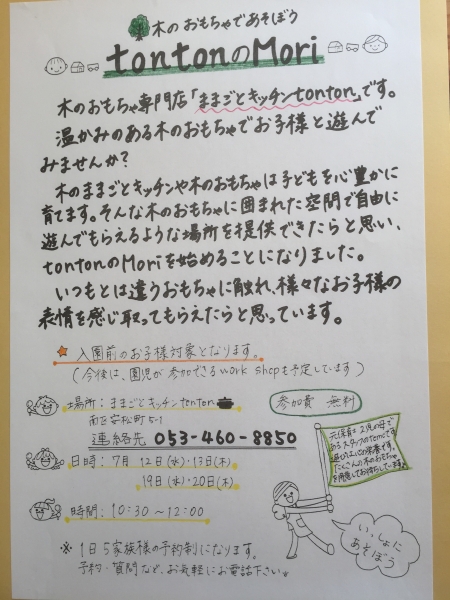 木のおもちゃであそぼう
tontonのMori
木のおもちゃ専門店「ままごとキッチンtonton」です。
温かみのある木のおもちゃでお子様と遊んで
みませんか?
木のままごとキッチンや木のおもちゃは子どもを心豊かに
育てます。そんな木のおもちゃに囲まれた空間で自由に
遊んでもらえるような場所を提供できたらと思い、
tontonのMoriを始めることになりました。
いつもとは違うおもちゃに触れ、様々なお子様の
表情を感じ取ってもらえたらと思っています。
入園前のお子様対象となります。
(今後は、園児が参加できるwork shopも予定しています)
場所:ままごとキッチンtonton
南区安松町5-1
参加費 無料
連絡先 053-460-8850
日時:7月 12日(水)・13日(木)
19日(水)・20日(木)
時間:10:30〜12:00
※1日5家族様の予約制になります。
予約・質問など、お気軽にお電話下さい。
元保育士、2児の母で
あるスタッフの
遊びは心の栄養です。
たくさんの木のおもちゃ
を用意してお待ちしています
いっしょに
あそぼう